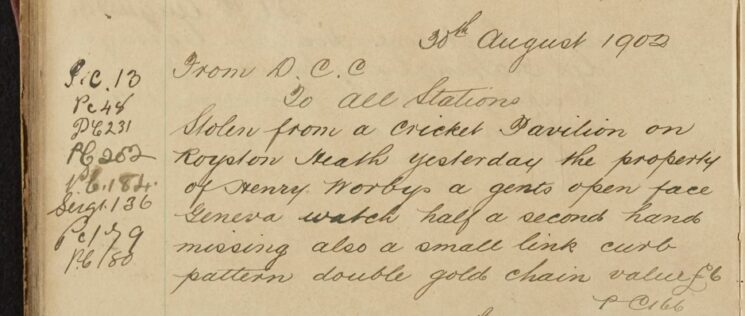 30th August 1902
From D.C.C
To All Stations
Stolen from a Cricket Pavilion on
Royston Heath yesterday the property
of Henry Worbys a gents open face
Geneva watch half a second hand
missing also a small link curb
pattern double gold chain value £6
P C 166
P.C. 13
Pc 48
PC 231
PC 252
P.C. 184.
Sergt. 136
Pc 179
P.C 180